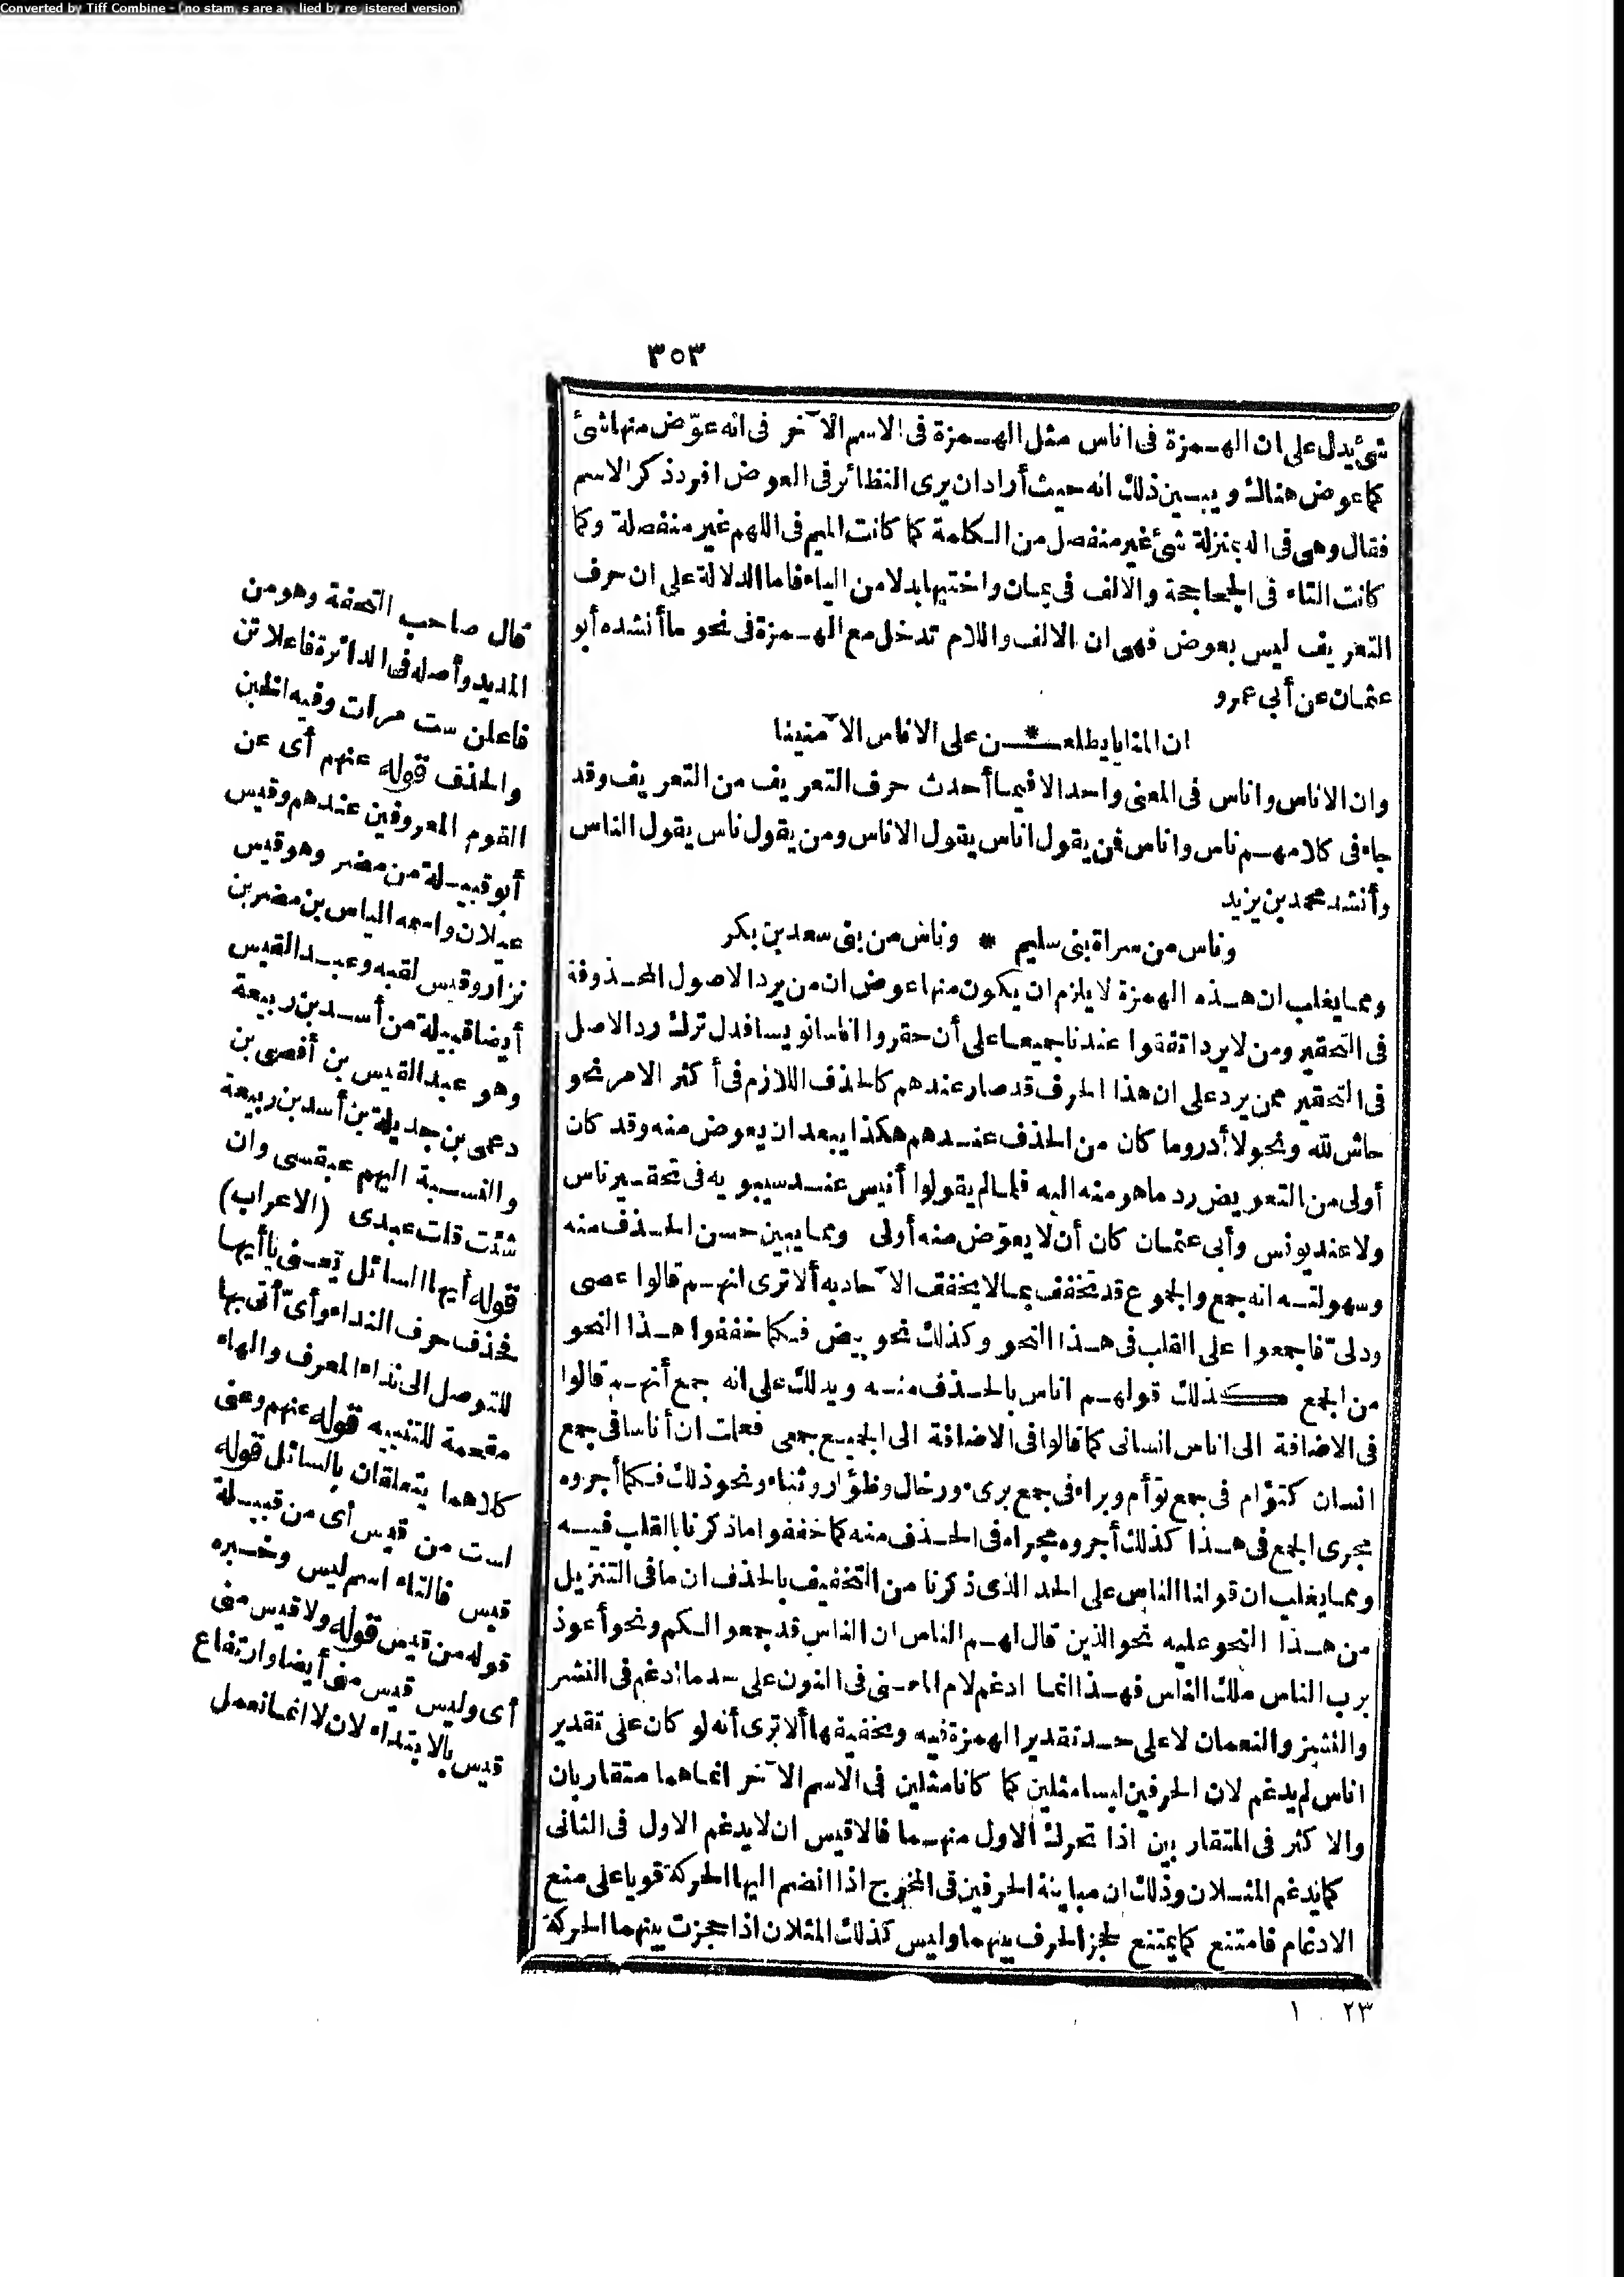 Converted by Tiff Combine - (no stamps are applied by registered version)
٣٥٣
شئ يدل على ان الهمزة فى اناس مثل الهمزة فى الاسم الآخر فى انه عوّض منها شئ
كما عوض هناك ويبين ذلك انه حيث أراد ان يرى النظائر فى العوض افرد ذكر الاسم
فقال وهى فى اله بمنزلة شئ غير منفصل من الكلمة كما كانت الميم فى اللهم غير منفصلة وكما
كانت التاء فى الجحاجحة والالف فى يمان واختيها بدلا من الياء فاما الدلالة على ان حرف
التعريف ليس بعوض فهى ان الالف واللام تدخل مع الهمزة فى نحو ما أنشده أبو
عثمان عن أبى عمرو
ان المنايا يطلعـ * ـن على الاناس الآمنينا
وان الاناس واناس فى المعنى واحد الا فيما أحدث حرف التعريف من التعريف وقد
جاء فى كلامهم ناس واناس فمن يقول اناس يقول الاناس ومن يقول ناس يقول الناس
وأنشد محمد بن يزيد
وناس من سراة بنى سليم * وناس من بنى سعد بن بكر
ومما يغلب ان هذه الهمزة لا يلزم ان يكون منها عوض ان من يرد الاصول المحذوفة
فى التحقير ومن لا يرد اتفقوا عندنا جميعا على أن حقروا اناسا نويسا فدل ترك رد الاصل
فى التحقير ممن يرد على ان هذا الحرف قد صار عندهم كالحذف اللازم فى أكثر الامر نحو
حاش لله ونحو لا أدر وما كان من الحذف عندهم هكذا يبعد ان يعوض منه وقد كان
أولى من التعويض رد ما هو منه اليه فلما لم يقولوا أنيس عند سيبويه فى تحقير ناس
ولا عند يونس وأبى عثمان كان أن لا يعوّض منه أولى ومما يبين حسن الحذف منه
وسهولته انه جمع والجموع قد تخفف بما لا يخفف الآحاد به ألا ترى انهم قالوا عصى
ودلىّ فاجمعوا على القلب فى هذا النحو وكذلك نحو بيض فكما خففوا هذا النحو
من الجمع كذلك قولهم اناس بالحذف منه ويدلك على انه جمع أنهم قالوا
فى الاضافة الى اناس انسانى كما قالوا فى الاضافة الى الجميع جمعى فعلمت ان أناسا فى جمع
انسان كتؤام فى جمع توأم وبراء فى جمع برىء ورخال وظؤار وثناء ونحو ذلك فكما أجروه
مجرى الجمع فى هذا كذلك أجروه مجراه فى الحذف منه كما خففوا ما ذكرنا بالقلب فيه
ومما يغلب ان قولنا الناس على الحد الذى ذكرنا من التخفيف بالحذف ان ما فى التنزيل
من هذا النحو عليه نحو الذين قال لهم الناس ان الناس قد جمعوا لكم ونحو أعوذ
برب الناس ملك الناس فهذا انما ادغم لام المعنى فى النون على حد ما ادغم فى النشر
والنشز والنعمان لا على حد تقدير الهمزة فيه وتخفيفها ألا ترى أنه لو كان على تقدير
اناس لم يدغم لان الحرفين ليسا مثلين كما كانا مثلين فى الاسم الآخر انما هما متقاربان
والاكثر فى المتقاربين اذا تحرك الاول منهما فالاقيس ان لا يدغم الاول فى الثانى
كما يدغم المثلان وذلك ان مباينة الحرفين فى المخرج اذا انضم اليها الحركة قويا على منع
الادغام فامتنع كما يمتنع لحجز الحرف بينهما وليس كذلك المثلان اذا حجزت بينهما الحركة
٢٣ ١
قال صاحب التحفة وهو من
المديد وأصله فى الدائرة فاعلاتن
فاعلن ست مرات وفيه الخبن
والحذف قوله عنهم أى عن
القوم المعروفين عندهم وقيس
أبو قبيلة من مضر وهو قيس
عيلان واسمه الياس بن مضر بن
نزار وقيس لقبه وعبد القيس
أيضا قبيلة من أسد بن ربيعة
وهو عبد القيس بن أفصى بن
دعمى بن جديلة بن أسد بن ربيعة
والنسبة اليهم عبقسى وان
شئت قلت عبدى (الاعراب)
قوله أيها السائل يعنى يا أيها
فحذف حرف النداء وأىّ أتى بها
للتوصل الى نداء المعرف والهاء
مقحمة للتنبيه قوله عنهم وعنى
كلاهما يتعلقان بالسائل قوله
لست من قيس أى من قبيلة
قيس فالتاء اسم ليس وخبره
قوله من قيس قوله ولا قيس منى
أى وليس قيس منى أيضا وارتفاع
قيس بالابتداء لان لا انما تعمل